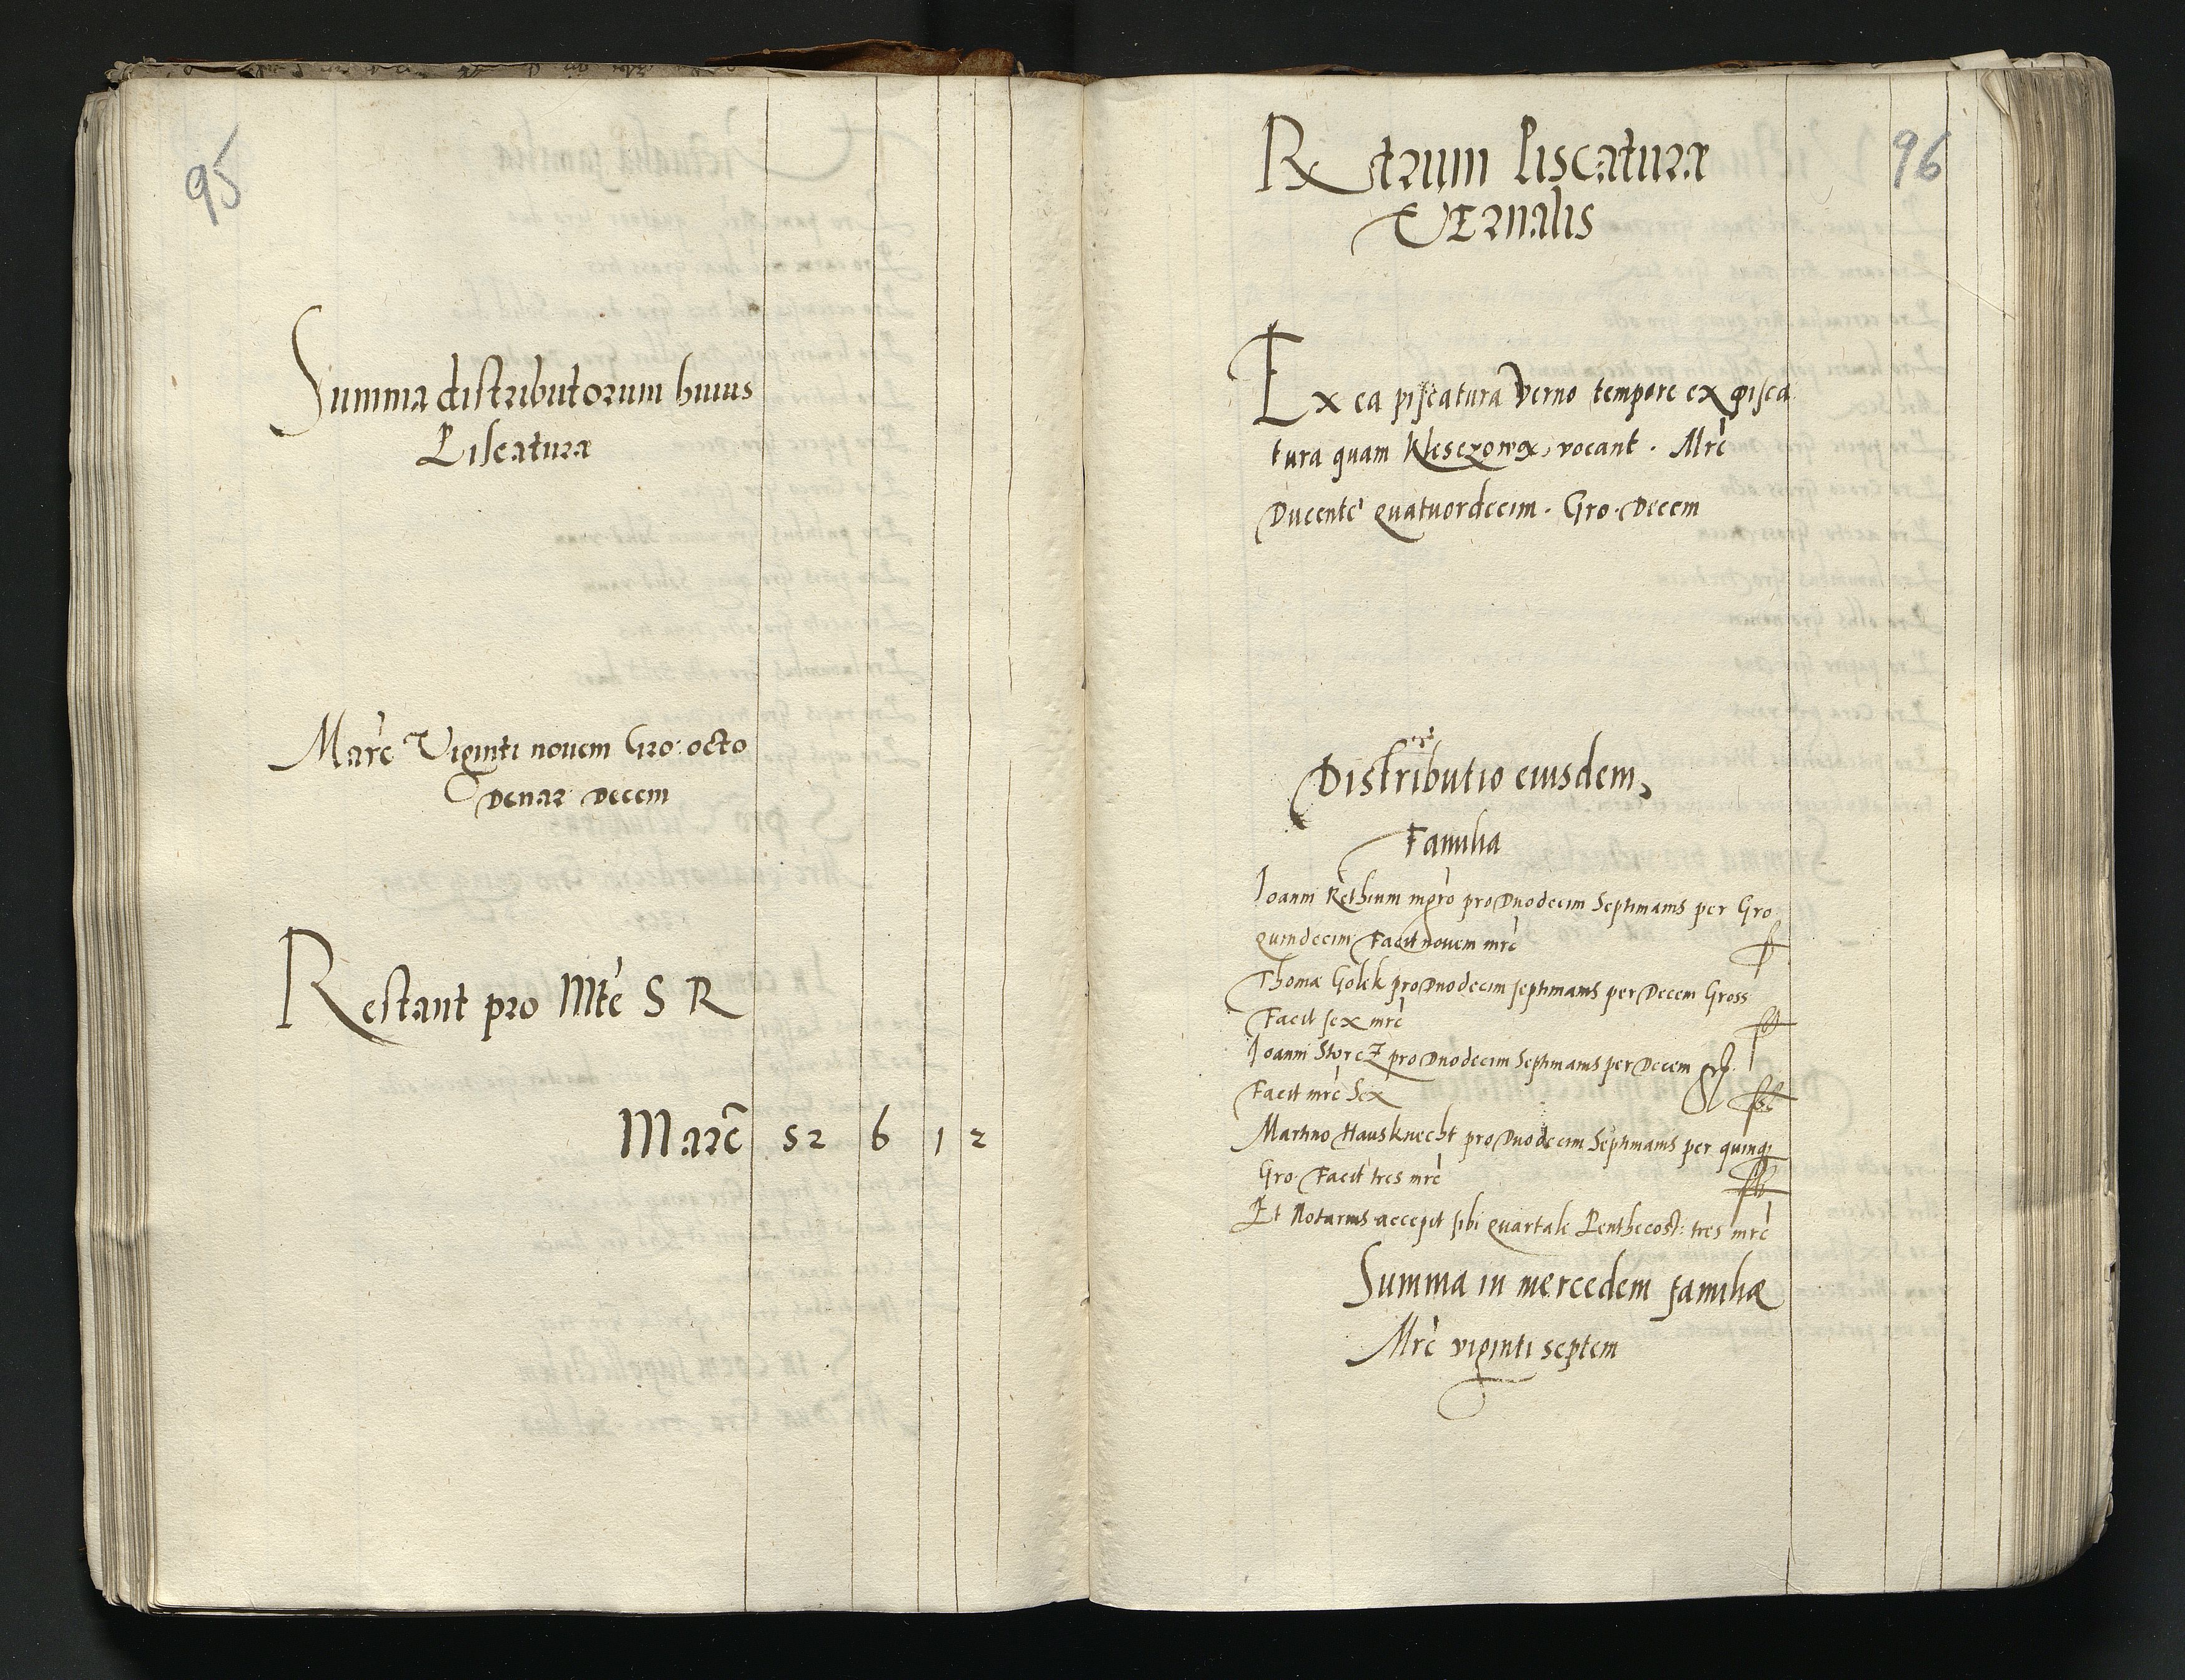 95
Summa distributorum huius
Piscaturæ
Marc Viginti novem Gro: octo
Denar Decem
Restant pro Mte S R
Marc 52 6 1 2
96
Rtrum Piscaturæ
Vernalis
Ex ea piscatura Verno tempore ex pisca
tura quam Klesczowa, vocant . Mrc
Ducente quatuordecim . Gro . Decem
Distributio eiusdem,
Familia
Joanni Rethium mgro pro Duodecim Septimanis per Gro
quindecim Facit novem mrc
Thomæ Golek pro Duodecim septimanis per Decem Gross
Facit sex mrc
Joanni Storcz pro Duodecim Septimanis per Decem gr.
Facit mrc Sex
Martino Hausknecht pro Duodecim Septimanis per quinq
Gro. Facit tres mrc
Et Notarius accepit sibi quartale Penthecost: tres mrc
Summa in mercedem familiæ
Mrc viginti septem